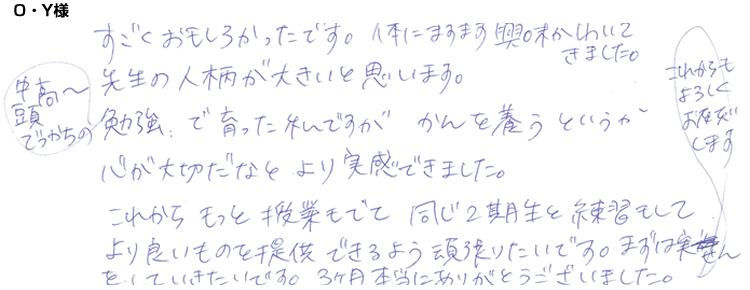 O・Y様
すごくおもしろかったです。体にますます興味がわいてきました。
先生の人柄が大きいと思います。
中高〜頭でっかちの
勉強で育った私ですが かんを養うというか
心が大切だなと より実感できました。
これからもっと授業もでて 同じ2期生と練習もして
より良いものを提供できるよう頑張りたいです。まずは実せん
をしていきたいです。3ヶ月本当にありがとうございました。
これからも
よろしく
お願い
します